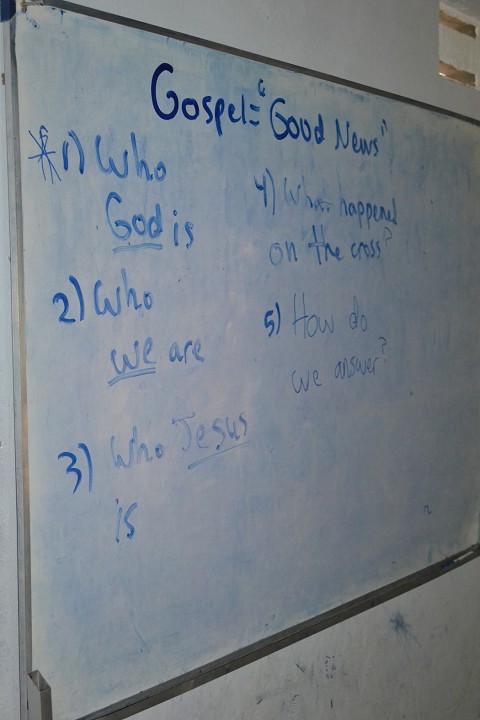 Gospel= "Good News"
1) Who
God is
2) Who
we are
3) Who Jesus
is
4) What happened
on the cross?
5) How do
we answer?